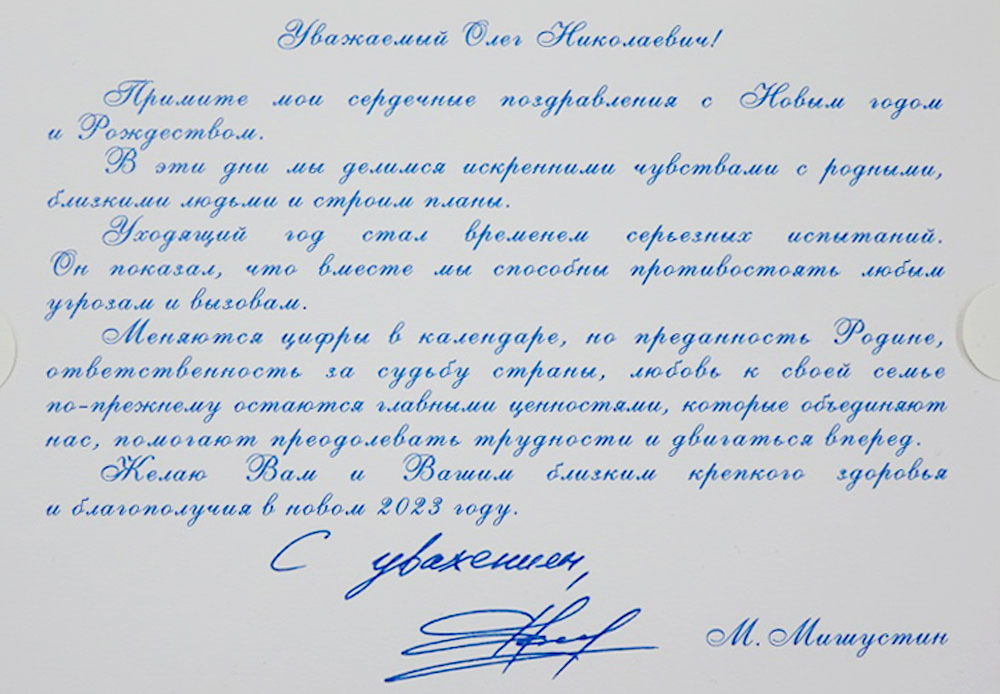 Уважаемый Олег Николаевич!
Примите мои сердечные поздравления с Новым годом
и Рождеством.
В эти дни мы делимся искренними чувствами с родными,
близкими людьми и строим планы.
Уходящий год стал временем серьезных испытаний.
Он показал, что вместе мы способны противостоять любым
угрозам и вызовам.
Меняются цифры в календаре, но преданность Родине,
ответственность за судьбу страны, любовь к своей семье
по-прежнему остаются главными ценностями, которые объединяют
нас, помогают преодолевать трудности и двигаться вперед.
Желаю Вам и Вашим близким крепкого здоровья
и благополучия в новом 2023 году.
С уважением,
М. Мишустин